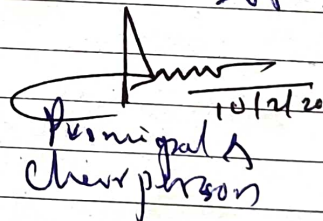 10/2/20
Principal &
Chairperson